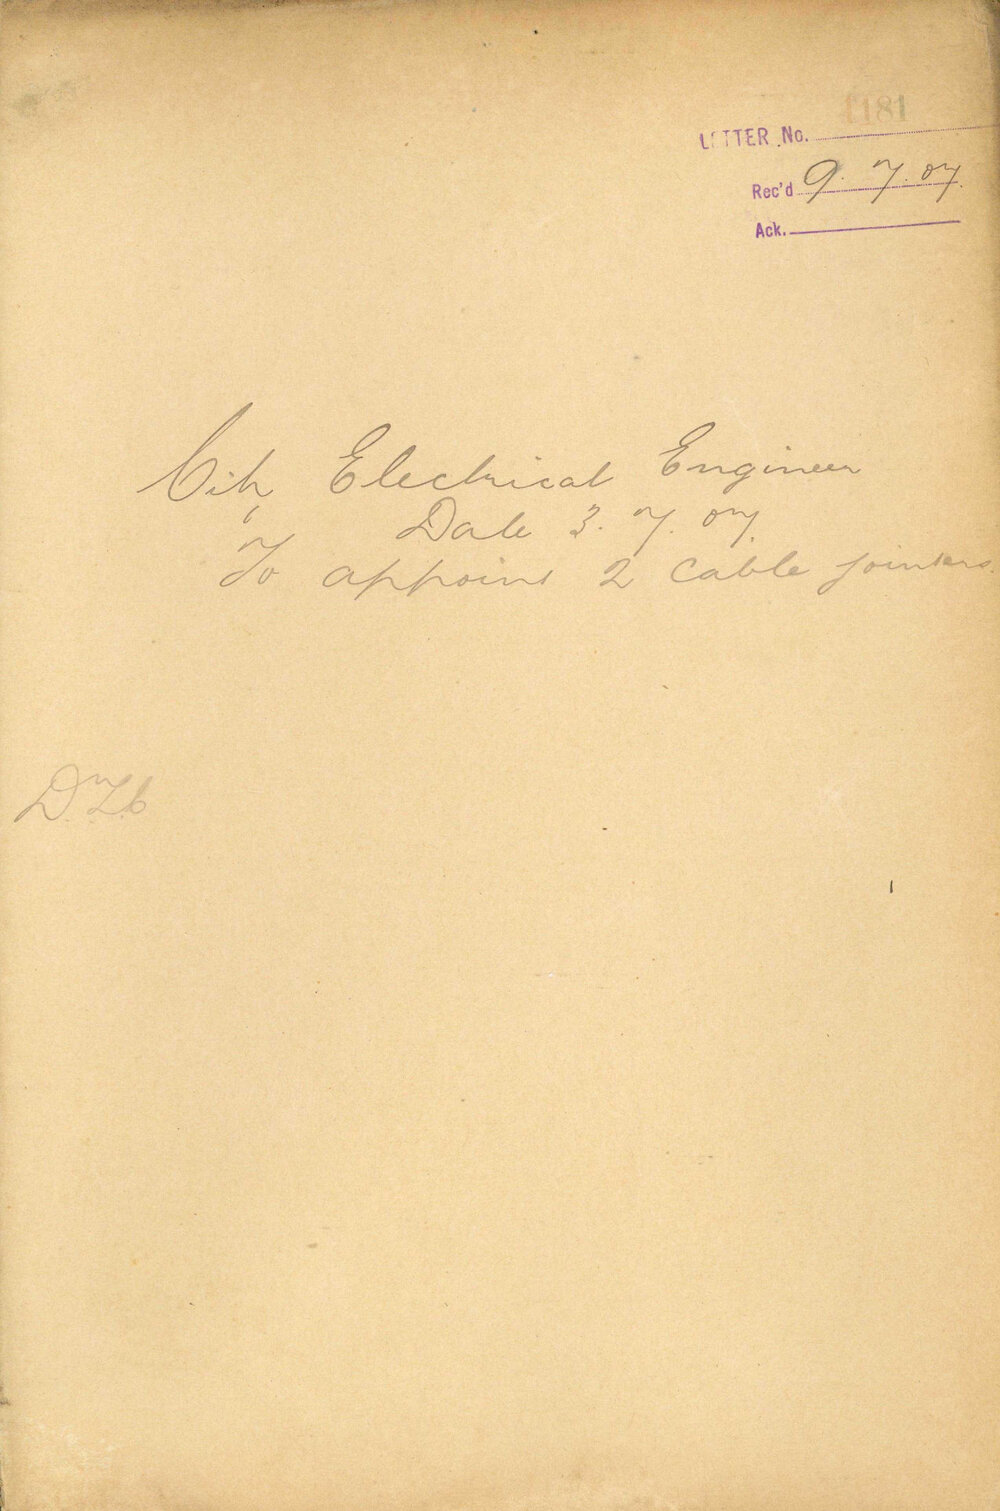 1181
LETTER No.
Rec'd 9.7.07.
Ack.
City Electrical Engineer
Date 3.7.07.
To appoint 2 cable jointers.